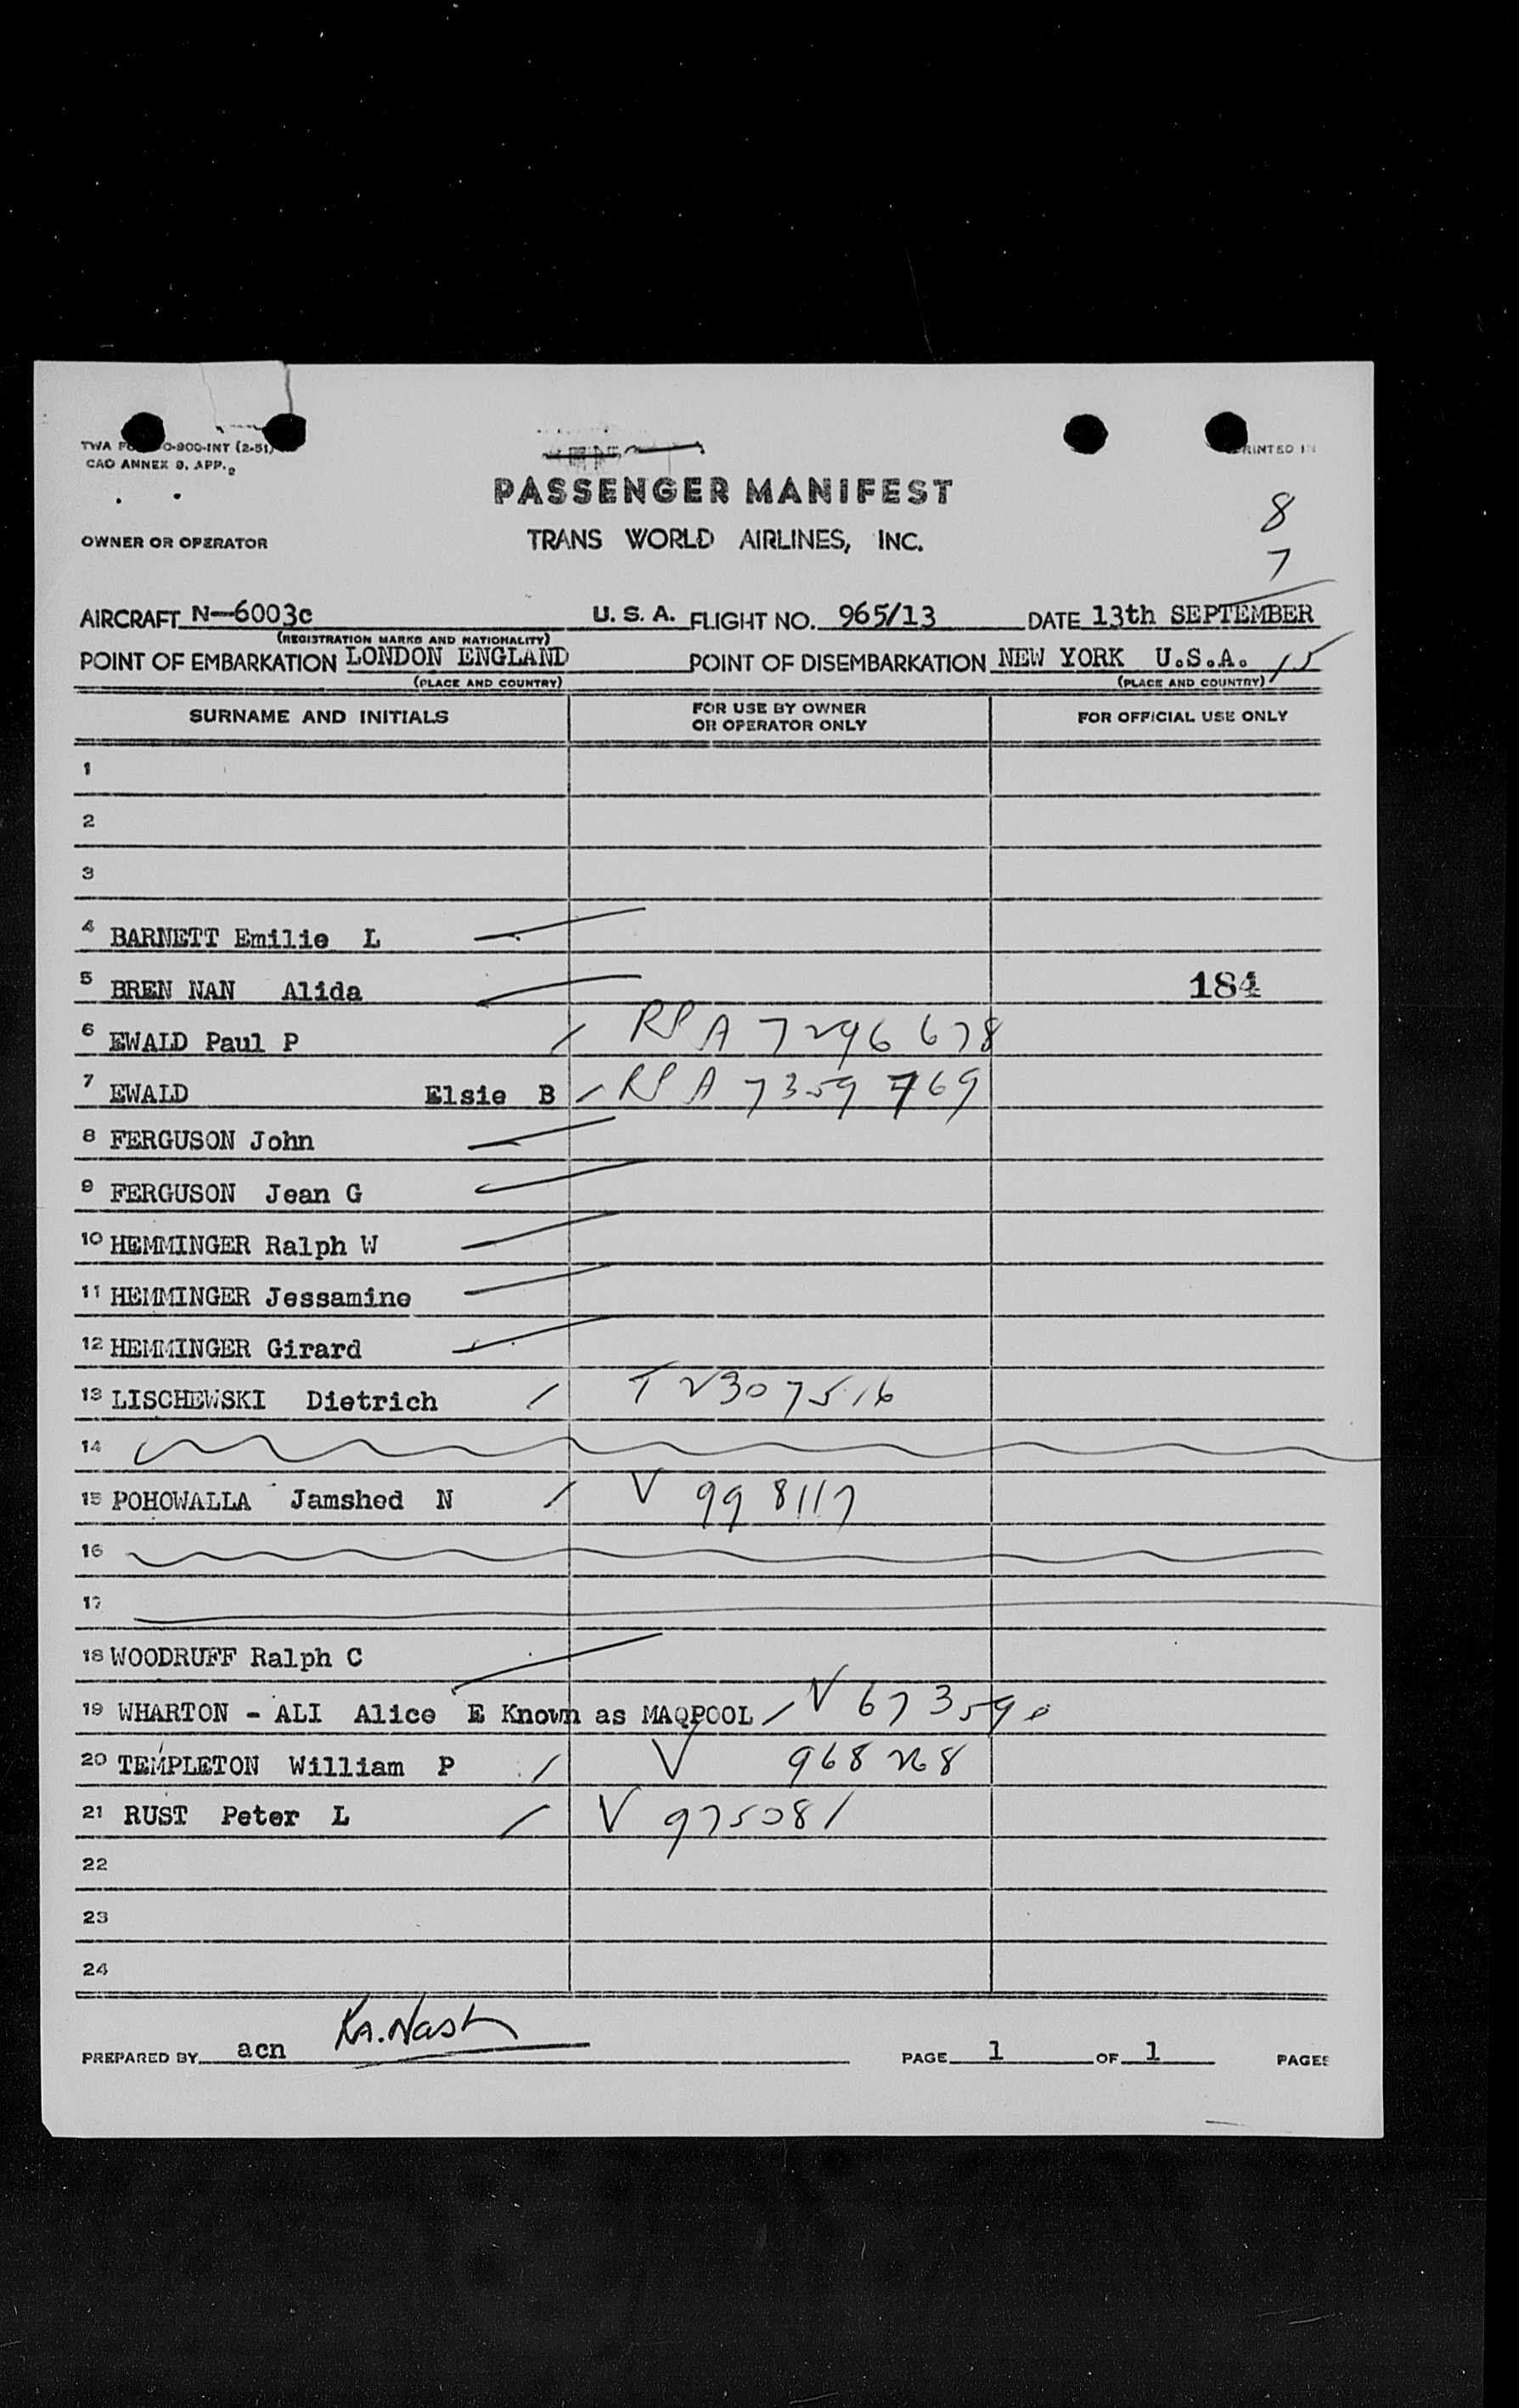 TWA F O-900-INT (2-51)
CAO ANNEX 9, APP. 2
PRINTED IN
PASSENGER MANIFEST
OWNER OR OPERATOR TRANS WORLD AIRLINES, INC.
8
7
15
AIRCRAFT N-6003c U. S. A. FLIGHT NO. 965/13 DATE 13th SEPTEMBER
(REGISTRATION MARKS AND NATIONALITY)
POINT OF EMBARKATION LONDON ENGLAND POINT OF DISEMBARKATION NEW YORK U.S.A.
(PLACE AND COUNTRY) (PLACE AND COUNTRY)
SURNAME AND INITIALS FOR USE BY OWNER OR OPERATOR ONLY FOR OFFICIAL USE ONLY
1
2
3
4 BARNETT Emilie L
5 BREN NAN Alida 184
6 EWALD Paul P A 7296 678
7 EWALD Elsie B A 7359 769
8 FERGUSON John
9 FERGUSON Jean G
10 HEMMINGER Ralph W
11 HEMMINGER Jessamine
12 HEMMINGER Girard
13 LISCHEWSKI Dietrich T 2307516
14
15 POHOWALLA Jamshed N V 998117
16
17
18 WOODRUFF Ralph C
19 WHARTON - ALI Alice E Known as MAQPOOL V 673590
20 TEMPLETON William P V 968268
21 RUST Peter L V 975081
22
23
24
PREPARED BY acn K.A. Nash PAGE 1 OF 1 PAGES